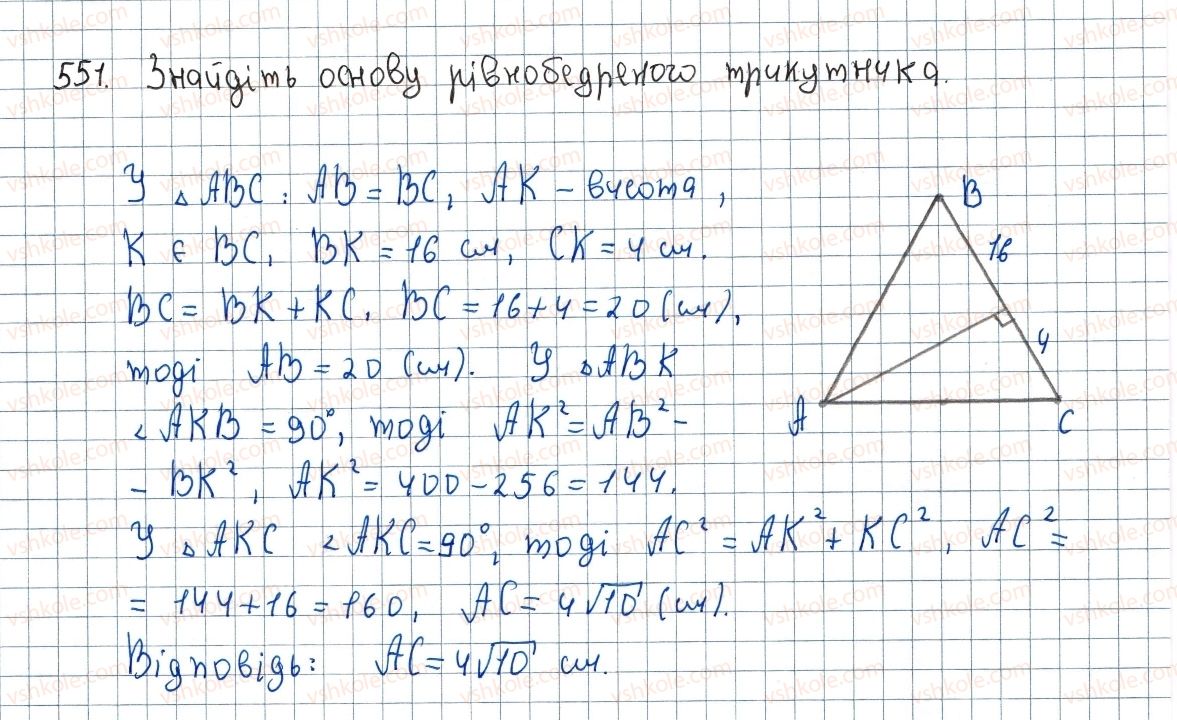 551. Знайдіть основу рівнобедреного трикутника.
У △ABC: AB = BC, AK – висота,
K ∈ BC, BK = 16 см, CK = 4 см.
BC = BK + KC, BC = 16 + 4 = 20 (см),
тоді AB = 20 (см). У △ABK
∠AKB = 90°, тоді AK² = AB² –
– BK², AK² = 400 – 256 = 144.
У △AKC ∠AKC = 90°, тоді AC² = AK² + KC², AC² =
= 144 + 16 = 160, AC = 4√10 (см).
Відповідь: AC = 4√10 см.
B
16
4
A
C
vshkole.com